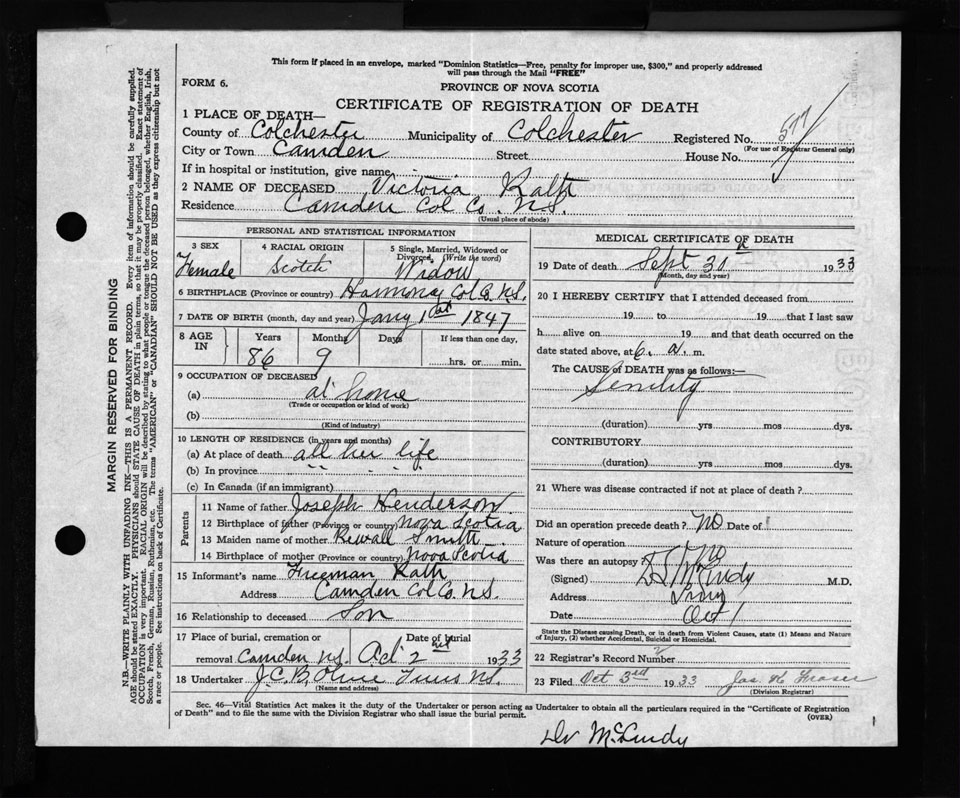 This form if placed in an envelope, marked "Dominion Statistics—Free, penalty for improper use, $300," and properly addressed
will pass through the Mail "FREE"
FORM 6.
PROVINCE OF NOVA SCOTIA
CERTIFICATE OF REGISTRATION OF DEATH
1 PLACE OF DEATH—
County of Colchester Municipality of Colchester Registered No. 577
(For use of Registrar General only)
City or Town Camden Street House No.
If in hospital or institution, give name
2 NAME OF DECEASED Victoria Rath
Residence Camden Col Co. N.S.
(Usual place of abode)
PERSONAL AND STATISTICAL INFORMATION
3 SEX 4 RACIAL ORIGIN 5 Single, Married, Widowed or
Divorced, (Write the word)
Female Scotch Widow
6 BIRTHPLACE (Province or country) Harmony Col Co. N.S.
7 DATE OF BIRTH (month, day and year) Jany 1st 1847
8 AGE IN Years Months Days If less than one day,
86 9 hrs. or min.
9 OCCUPATION OF DECEASED
(a) at home
(Trade or occupation or kind of work)
(b)
(Kind of industry)
10 LENGTH OF RESIDENCE (in years and months)
(a) At place of death all her life
(b) In province " " " "
(c) In Canada (if an immigrant)
Parents
11 Name of father Joseph Henderson
12 Birthplace of father (Province or country) Nova Scotia
13 Maiden name of mother Smith
14 Birthplace of mother (Province or country) Nova Scotia
15 Informant's name Freeman Rath
Address Camden Col Co. N.S.
16 Relationship to deceased Son
17 Place of burial, cremation or Date of burial
removal Camden N.S. Oct 2nd 1933
18 Undertaker J.C.B. N.S.
(Name and address)
MEDICAL CERTIFICATE OF DEATH
19 Date of death Sept 30th 1933
(Month, day and year)
20 I HEREBY CERTIFY that I attended deceased from
19 to 19 that I last saw
h alive on 19 and that death occurred on the
date stated above, at 6. a. m.
The CAUSE of DEATH was as follows:—
Senility
(duration) yrs mos dys.
CONTRIBUTORY
(duration) yrs mos dys.
21 Where was disease contracted if not at place of death?
Did an operation precede death? No Date of
Nature of operation
Was there an autopsy? No
(Signed) M.D.
Address Truro
Date Oct 1
State the Disease causing Death, or in death from Violent Causes, state (1) Means and Nature
of Injury, (2) whether Accidental, Suicidal or Homicidal.
22 Registrar's Record Number
23 Filed Oct 3rd 1933 Jas. Fraser
(Division Registrar)
Sec. 46—Vital Statistics Act makes it the duty of the Undertaker or person acting as Undertaker to obtain all the particulars required in the "Certificate of Registration
of Death" and to file the same with the Division Registrar who shall issue the burial permit.
(OVER)
Dr
MARGIN RESERVED FOR BINDING
N.B.—WRITE PLAINLY WITH UNFADING INK—THIS IS A PERMANENT RECORD. Every item of information should be carefully supplied.
AGE should be stated EXACTLY. PHYSICIANS should STATE CAUSE OF DEATH in plain terms, so that it may be properly classified. Exact statement of
OCCUPATION is very important. RACIAL ORIGIN will be described by stating to what people or tongue the deceased person belonged, whether English, Irish,
Scotch, French, German, Russian, Ruthenian, etc. The terms "AMERICAN" or "CANADIAN" SHOULD NOT BE USED as they express citizenship but not
a race or people. See instructions on back of Certificate.